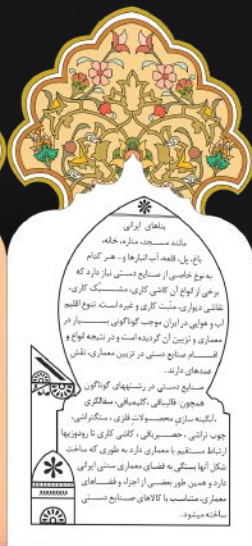 بناهای ایرانی
مانند مسجد، مناره، خانه،
باغ، پل، قلعه، آب انبارها و... هر کدام
به نوع خاصی از صنایع دستی نیاز دارد که
برخی از انواع آن کاشی کاری، مشبک کاری،
نقاشی دیواری، منبّت کاری و غیره است. تنوع اقلیم
آب و هوایی در ایران موجب گوناگونی بسیار در
معماری و تزیین آن گردیده است و در نتیجه انواع و
اقسام صنایع دستی در تزیین معماری، نقش
عمده‌ای دارند.
صنایع دستی در رشته‌های گوناگون
همچون: قالیبافی، گلیمبافی، سفالگری
،آبگینه سازی محصولات فلزی، سنگتراشی،
چوب تراشی، حصیربافی، کاشی کاری تا رودوزیها
ارتباط مستقیم با معماری دارد به طوری که ساخت
شکل آنها بستگی به فضای معماری سنتی ایرانی
دارد و همین طور بعضی از اجزاء و فضاهای
معماری، متناسب با کالاهای صنایع دستی
ساخته میشود.